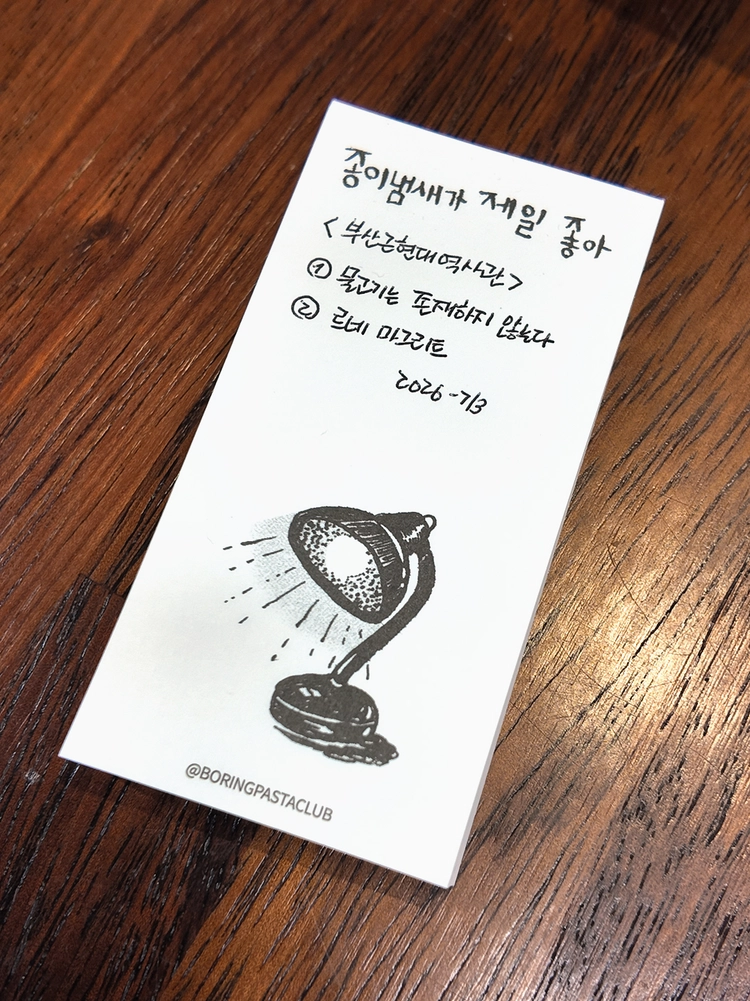 종이냄새가 제일 좋아
<부산근현대역사관>
① 물고기는 존재하지 않는다
② 르네 마그리트
2026-7/3
@BORINGPASTACLUB